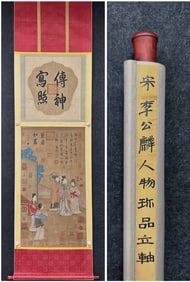 傳神
寫照
宋 李公麟人物珍品立軸